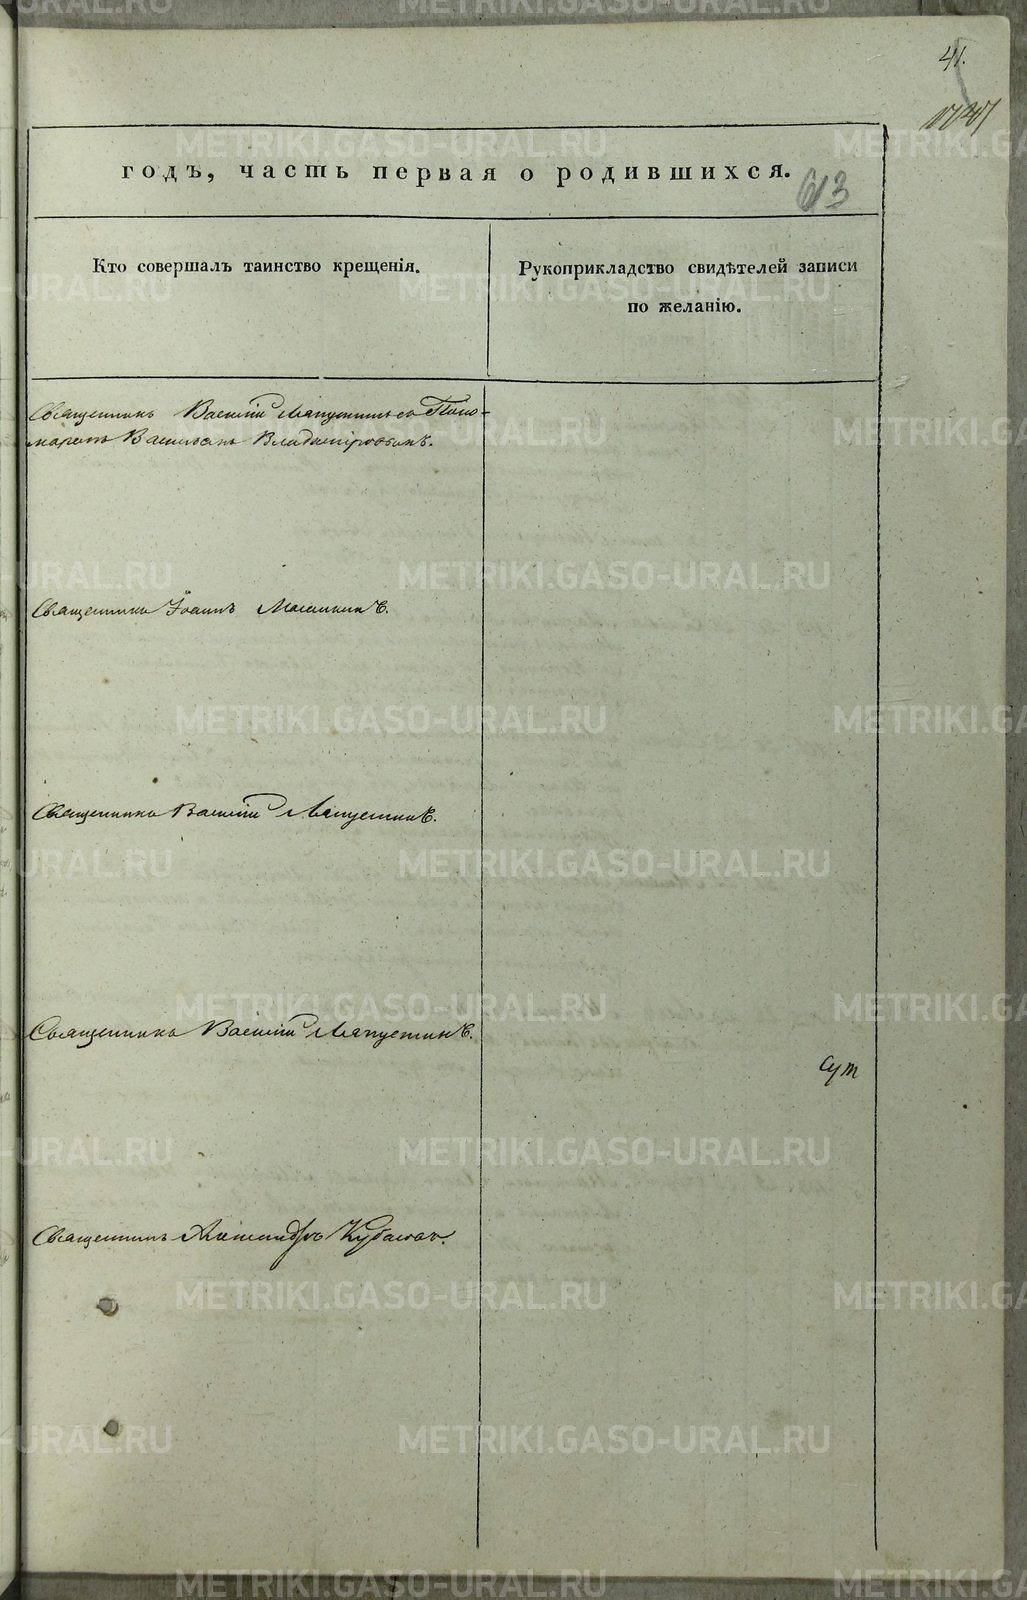 41.
годъ, часть первая о родившихся.
613
Кто совершалъ таинство крещенія.
Рукоприкладство свидѣтелей записи
по желанію.
Священникъ Василій Лапустинъ съ Поно-
маремъ Васильемъ Владиміровымъ.
Священникъ Іоаннъ
Священникъ Василій Лапустинъ.
Священникъ Василій Лапустинъ.
Священникъ Александръ
METRIKI.GASO-URAL.RU